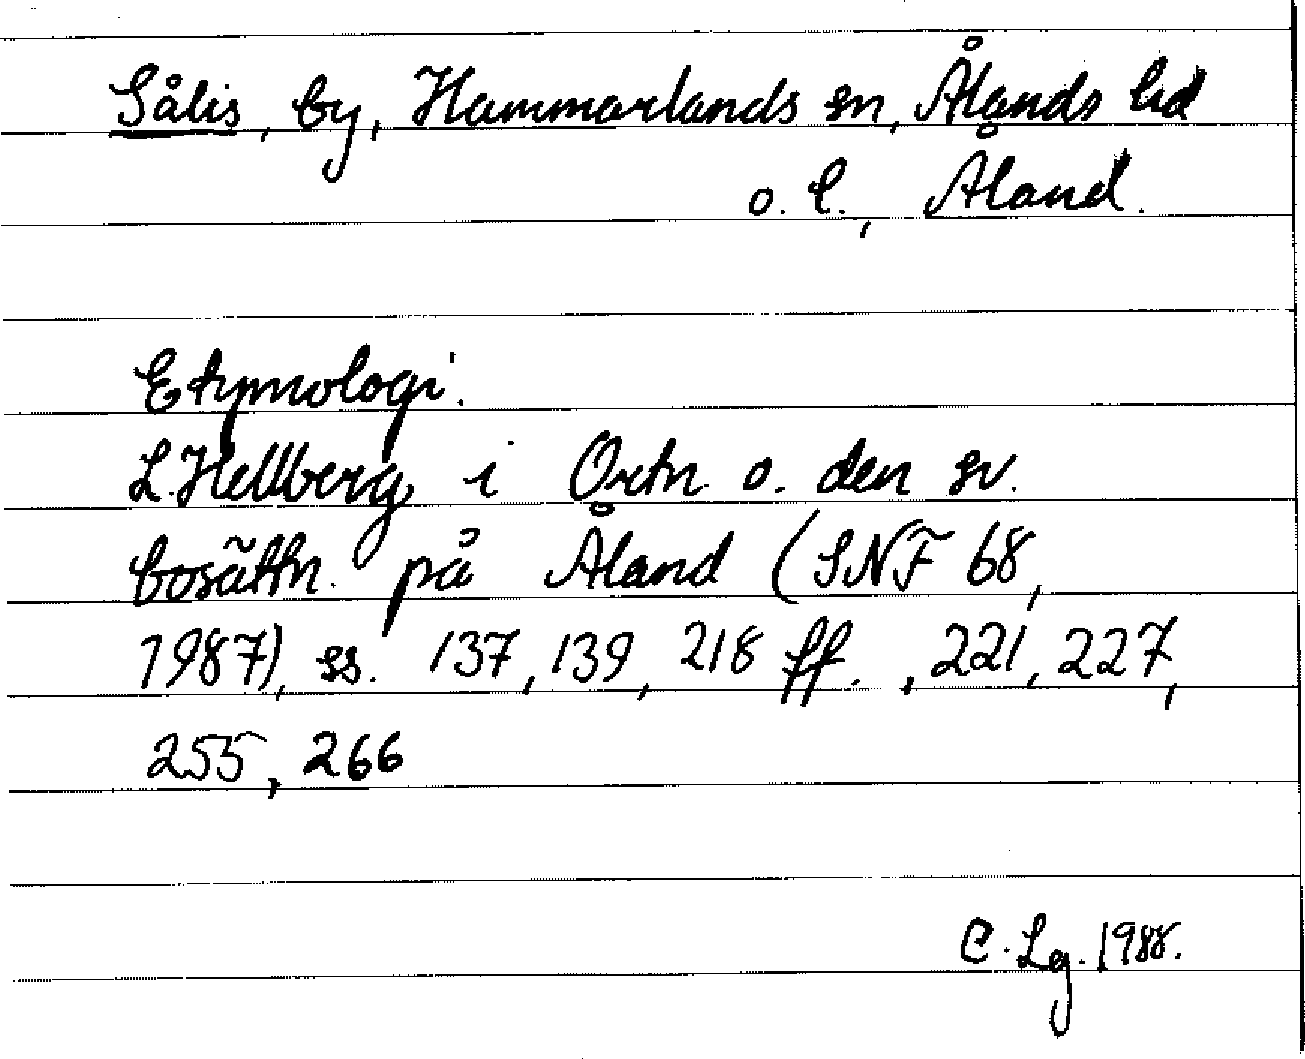 Sålis, by, Hammarlands sn, Ålands hd
o. l., Åland.
Etymologi.
L. Hellberg i Ortn. o. den sv.
bosättn. på Åland (SNF 68,
1987), ss. 137, 139, 218 ff., 221, 227,
255, 266
C. Lg. 1988.